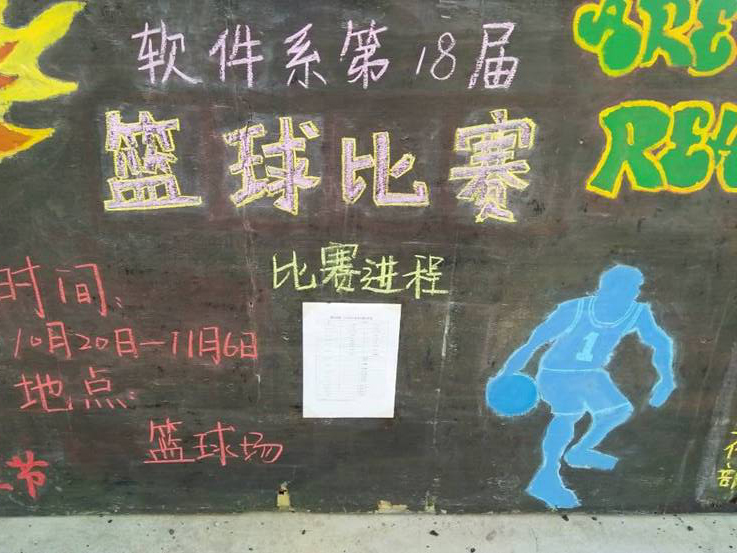 软件系第18届
篮球比赛
ARE
RE
比赛进程
时间:
10月20日—11月6日
地点:
篮球场
节
1
部